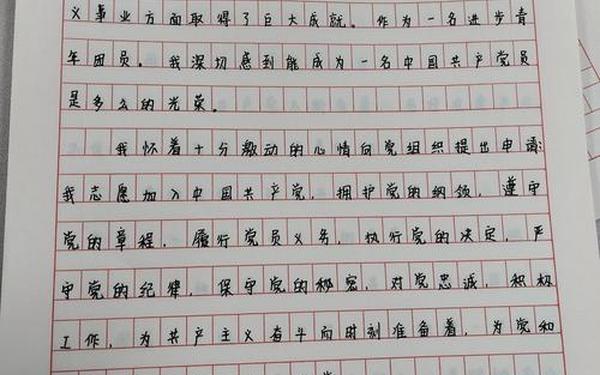 义事业方面取得了巨大成就。作为一名进步青
年团员。我深切感到能成为一名中国共产党员
是多么的光荣。
我怀着十分激动的心情向党组织提出申请:
我志愿加入中国共产党，拥护党的纲领，遵守
党的章程，履行党员义务，执行党的决定，严
守党的纪律，保守党的秘密，对党忠诚，积极
工作，为共产主义奋斗向时刻准备着，为党和